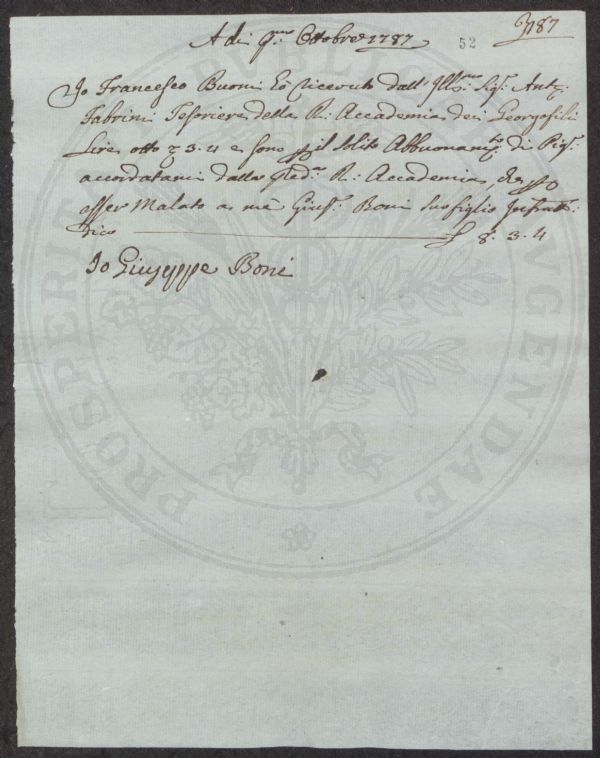 A di P.mo Ottobre 1787
52
187
Io Francesco Buoni hò ricevuto dall' Ill.mo Sig.r Ant.o
Fabrini Tesoriere della R: Accademia dei Georgofili
Lire otto 3.4 e sono p il solito Abbuonam.to di Pig.e
accordatami dalla Med.ma R: Accademia, che p
esser Malato a me Gius.e Boni suo figlio
dico £ 8.3.4
Io Giuseppe Boni
PROSPERITATI PUBLICAE AUGENDAE